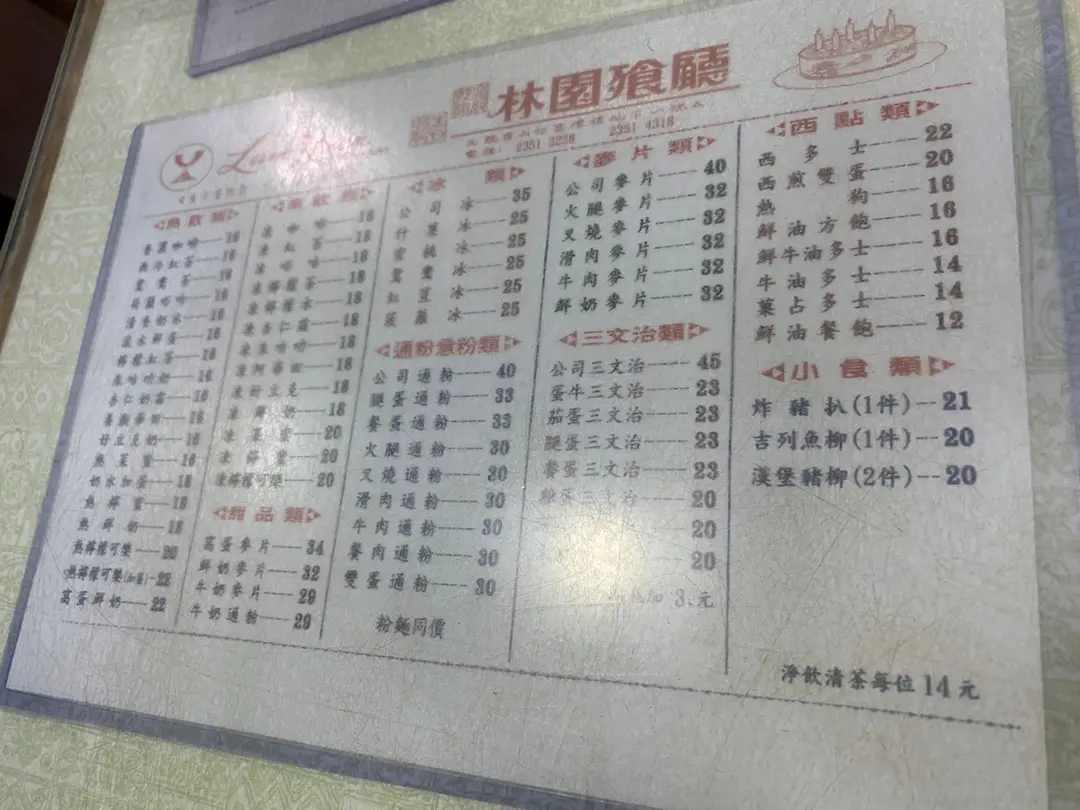 林園飱廳
電話: 2351 2238 2351 4318
熱飲類
香濃咖啡 16
西冷紅茶 16
鴛鴦茶 16
荷蘭咕咕 16
清香奶水 16
滾水鮮蛋 16
檸檬紅茶 16
杏仁奶霜 16
好立克奶 16
熱菓蜜 16
奶水加蛋 18
熱檸蜜 18
熱鮮奶 18
熱檸檬可樂 20
熱檸檬可樂 22
窩蛋鮮奶 22
凍飲類
凍咖啡 18
凍紅茶 18
凍咕咕 18
凍檸檬茶 18
凍檸檬水 18
凍杏仁霜 18
凍阿華田 18
凍好立克 18
凍鮮奶 18
凍菓蜜 20
凍檸蜜 20
凍檸檬可樂 20
甜品類
窩蛋麥片 34
鮮奶麥片 32
牛奶麥片 29
牛奶通粉 29
冰類
公司冰 35
什菓冰 25
蜜桃冰 25
鴛鴦冰 25
紅豆冰 25
菠蘿冰 25
通粉意粉類
公司通粉 40
腿蛋通粉 33
餐蛋通粉 33
火腿通粉 30
叉燒通粉 30
滑肉通粉 30
牛肉通粉 30
餐肉通粉 30
雙蛋通粉 30
粉麵同價
麥片類
公司麥片 40
火腿麥片 32
叉燒麥片 32
滑肉麥片 32
牛肉麥片 32
鮮奶麥片 32
三文治類
公司三文治 45
蛋牛三文治 23
茄蛋三文治 23
腿蛋三文治 23
餐蛋三文治 23
三文治 20
20
20
加 3、元
西點類
西多士 22
西煎雙蛋 20
熱狗 16
鮮油方飽 16
鮮牛油多士 16
牛油多士 14
菓占多士 14
鮮油餐飽 12
小食類
炸豬扒(1件) 21
吉列魚柳(1件) 20
漢堡豬柳(2件) 20
淨飲清茶每位14元